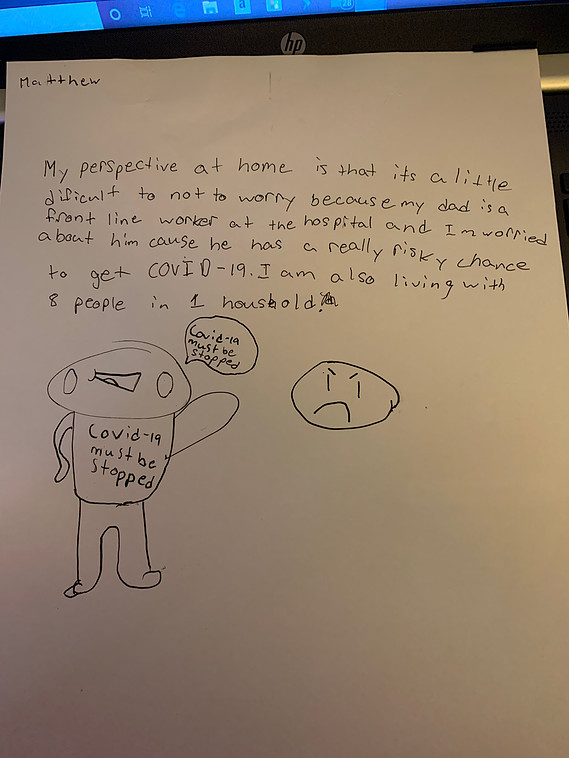 hp
Matthew
My perspective at home is that its a little
dificult to not to worry because my dad is a
front line worker at the hospital and I'm worried
about him cause he has a really risky chance
to get COVID-19. I am also living with
8 people in 1 houshold.
Covid-19
must be
stopped
Covid-19
must be
stopped